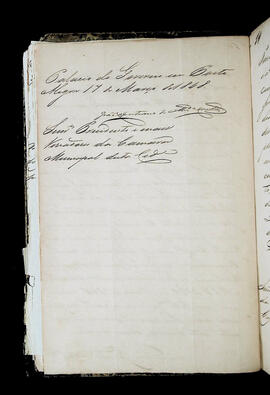 Palacio do Governo em Porto
Alegre 17 de Março de 1848.
Snr.es Presidente e mais
Vereadores da Camara
Municipal desta Cid.e